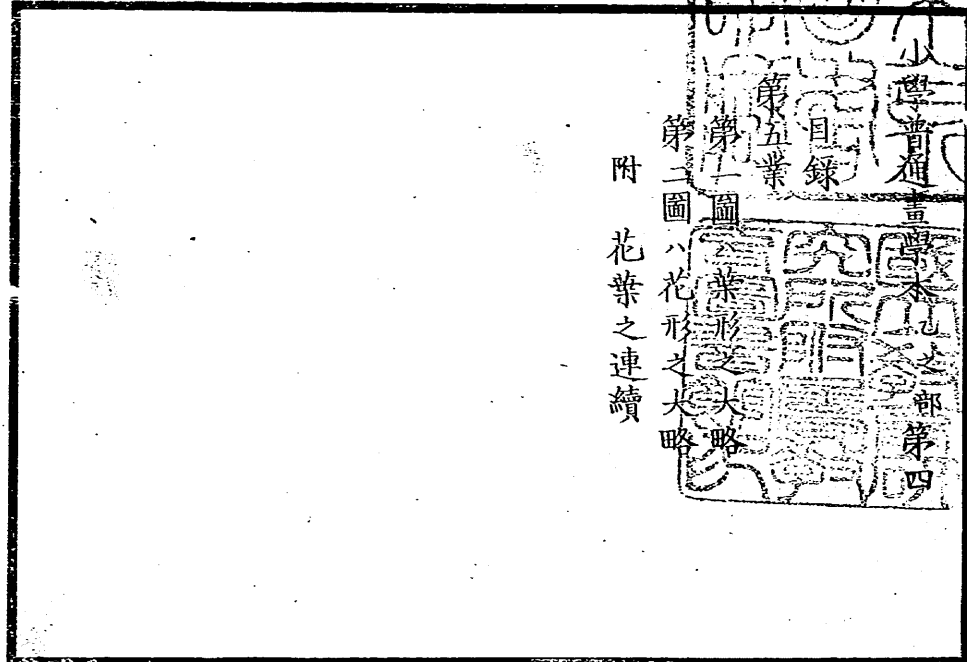 小學普通畫學本乙之部第四
目錄
第五業
第一圖ハ葉形之大略
第二圖ハ花形之大略
附 花葉之連續